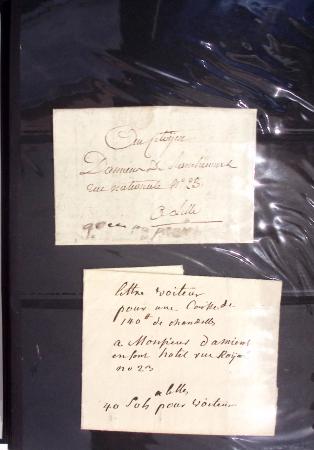 Au Citoyen
Damiens De
rue nationale N° 23.
a Lille
lettre voiture
pour une Caisse de
140# de chandelles
a Monsieur d'amiens
en font hotel rue Royal
no 23
a lille
40 Sols pour voiture